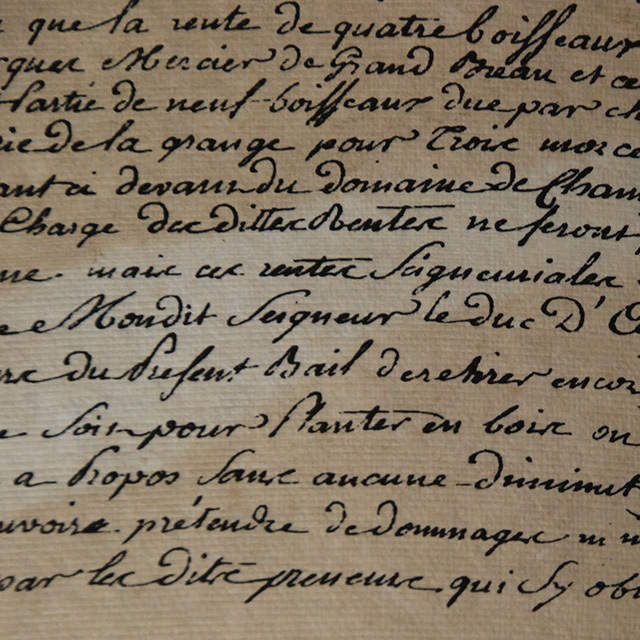 que la rente de quatre boisseaux
Mercier de Grand et
Partie de neuf boisseaux due par
de la grange pour Trois
devans du domaine de
Charge des dittes Rentes ne feront
mais ces rentes Seigneuriales
Mondit Seigneur le duc D'
du Present Bail de retirer
Soin pour Planter en bois ou
a Propos Sans aucune
prétendre de dommages ni
par les dits preneurs qui S'y